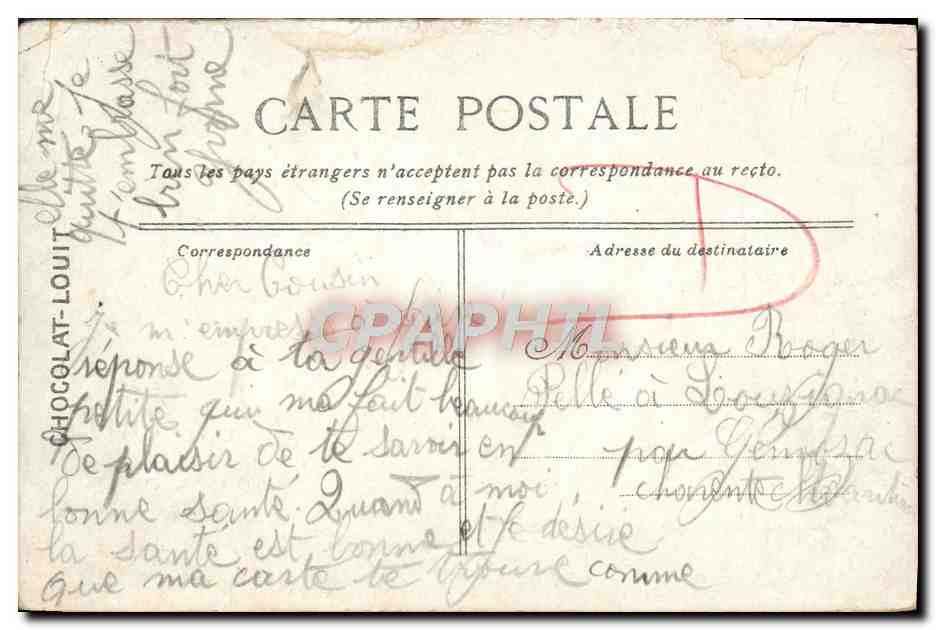 CARTE POSTALE
Tous les pays étrangers n'acceptent pas la correspondance au recto.
(Se renseigner à la poste.)
Correspondance
Cher Cousin
je m'empresse
réponse à ta gentille
petite qui ma fait beaucoup
de plaisir de te savoir en
bonne santé. Quand à moi,
la santé est bonne et je désire
que ma carte te trouve comme
elle me
quitte Je
t'embrasse
bien fort
Adresse du destinataire
Monsieur Roger
Pellé à
par
charente
CHOCOLAT-LOUIT
CPAPHIL
D